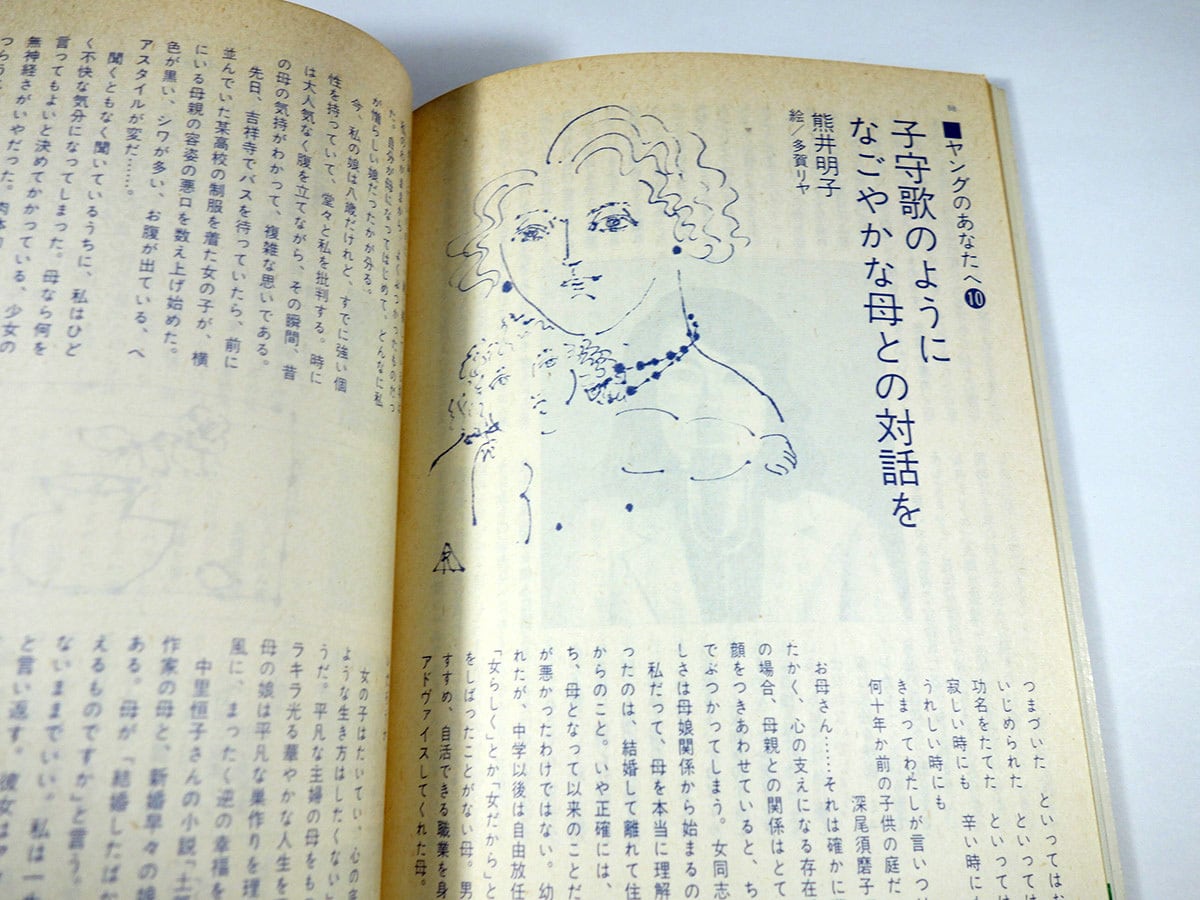 ■ヤングのあなたへ❿
子守歌のように
なごやかな母との対話を
熊井明子
絵/多賀リヤ
つまづいた といってはな
いじめられた といっては
功名をたてた といっては
寂しい時にも 辛い時に
うれしい時にも
きまってわたしが言いつ
何十年か前の子供の庭だ
深尾須磨子
お母さん……それは確かに
たかく、心の支えになる存在
の場合、母親との関係はとて
顔をつきあわせていると、ち
でぶつかってしまう。女同志
しさは母娘関係から始まるの
私だって、母を本当に理解
ったのは、結婚して離れて住
からのこと。いや正確には、
ち、母となって以来のことだ
が悪かったわけではない。幼
れたが、中学以後は自由放任
「女らしく」とか「女だから」と
をしばったことがない母。男
すすめ、自活できる職業を身
アドヴァイスしてくれた母。
た。自分が母になってはじめて、どんなに私
が憎らしい娘だったかが分る。
今、私の娘は八歳だけれど、すでに強い個
性を持っていて、堂々と私を批判する。時に
は大人気なく腹を立てながら、その瞬間、昔
の母の気持がわかって、複雑な思いである。
先日、吉祥寺でバスを待っていたら、前に
並んでいた某高校の制服を着た女の子が、横
にいる母親の容姿の悪口を数え上げ始めた。
色が黒い、シワが多い、お腹が出ている、ヘ
アスタイルが変だ……。
聞くともなく聞いているうちに、私はひど
く不快な気分になってしまった。母なら何を
言ってもよいと決めてかかっている、少女の
無神経さがいやだった。肉体
女の子はたいてい、心の
ような生き方はしたくないと
うだ。平凡な主婦の母をも
ラキラ光る華やかな人生を
母の娘は平凡な巣作りを理
風に、まったく逆の幸福を
中里恒子さんの小説「土
作家の母と、新婚早々の娘
ある。母が「結婚したばな
えるものですか」と言う。
ないままでいい。私は一
と言い返す。彼女は